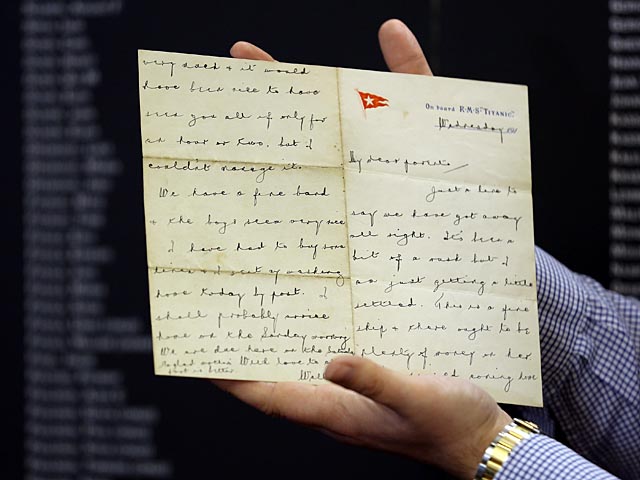 On board R.M.S. "TITANIC".
Wednesday 191
My dear parents
Just a line to
say we have got away
all right. It's been a
bit of a rush but I
am just getting a little
settled. This is a fine
ship & there ought to be
plenty of money on her
missed coming home
very much & it would
have been nice to have
seen you all if only for
an hour or two, but I
couldn't manage it.
We have a fine band
& the boys seem very nice
I have had to buy some
linen & I sent my washing
home today by post. I
shall probably arrive
home on the Sunday morning
We are due here on the
So glad With love to
foot is better